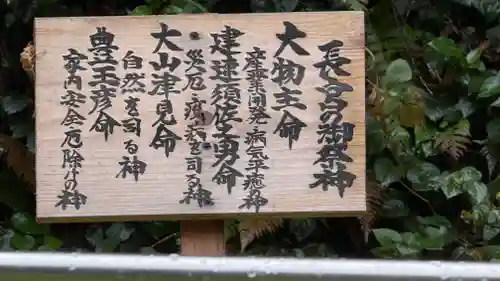 長宮の御祭神
大物主命
産業開発病気平癒の神
建速須佐之男命
災厄疫病を司る神
大山津見命
自然を司る神
豊玉彦命
家内安全厄除けの神